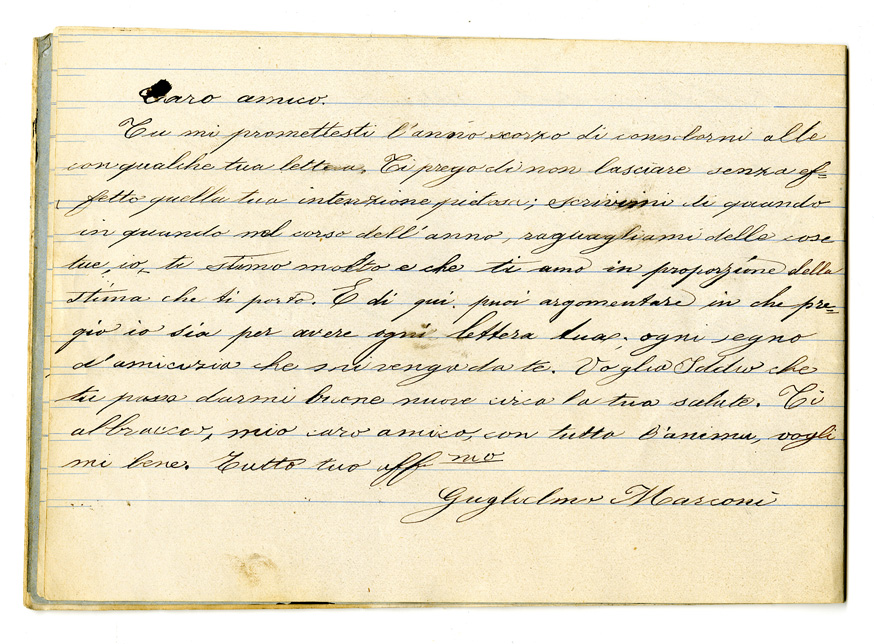 Caro amico.
Tu mi promettesti l'anno scorso di consolarmi alle
con qualche tua lettera. Ti prego di non lasciare senza ef-
fetto quella tua intenzione pietosa; scrivimi di quando
in quando nel corso dell'anno, raguagliami delle cose
tue, io ti stimo molto e che ti amo in proporzione della
stima che ti porto. E di qui puoi argomentare in che pre-
gio io sia per avere ogni lettera tua. ogni segno
d'amicizia che mi venga da te. Voglia Iddio che
tu possa darmi buone nuove circa la tua salute. Ti
abbraccio, mio caro amico, con tutta l'anima, vogli
mi bene. Tutto tuo aff mo
Guglielmo Marconi